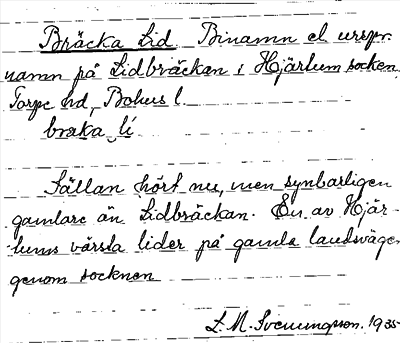 Bräcka Lid Binamn el. urspr.
namn på Lidbräckan i Hjärtum socken,
Torpe hd, Bohus l.
bräka lí
Sällan hört nu, men synbarligen
gamlare än Lidbräckan. En av Hjär-
tums värsta lider på gamla landsvägen
genom socknen
L. M. Svenungsson. 1935